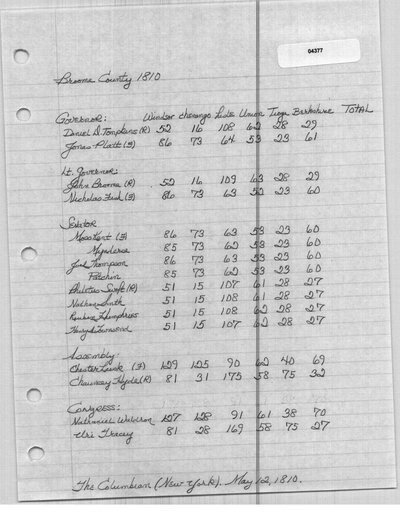 04377
Broome County 1810
Governor: Windsor Chenango Lisle Union Tioga Berkshire TOTAL
Daniel D. Tompkins (R) 52 16 108 62 28 29
Jonas Platt (F) 86 73 64 53 23 61
Lt. Governor:
John Broome (R) 52 16 109 63 28 29
Nicholas Fish (F) 86 73 63 53 23 60
Senator
Moss Kent (F) 86 73 63 53 23 60
Mynderse 85 73 62 53 23 60
Joel Thompson 86 73 63 53 23 60
Patchin 85 73 62 53 23 60
Philetus Swift (R) 51 15 107 61 28 27
Nathan Smith 51 15 108 61 28 27
Reuben Humphries 51 15 108 62 28 27
Henry Townsend 51 15 107 62 28 27
Assembly:
Chester (F) 129 125 90 62 40 69
Chauncey Hyde (R) 81 31 173 58 75 32
Congress:
Nathaniel 127 128 91 61 38 70
Uri Tracy 81 28 169 58 75 27
The Columbian (New York). May 12, 1810.